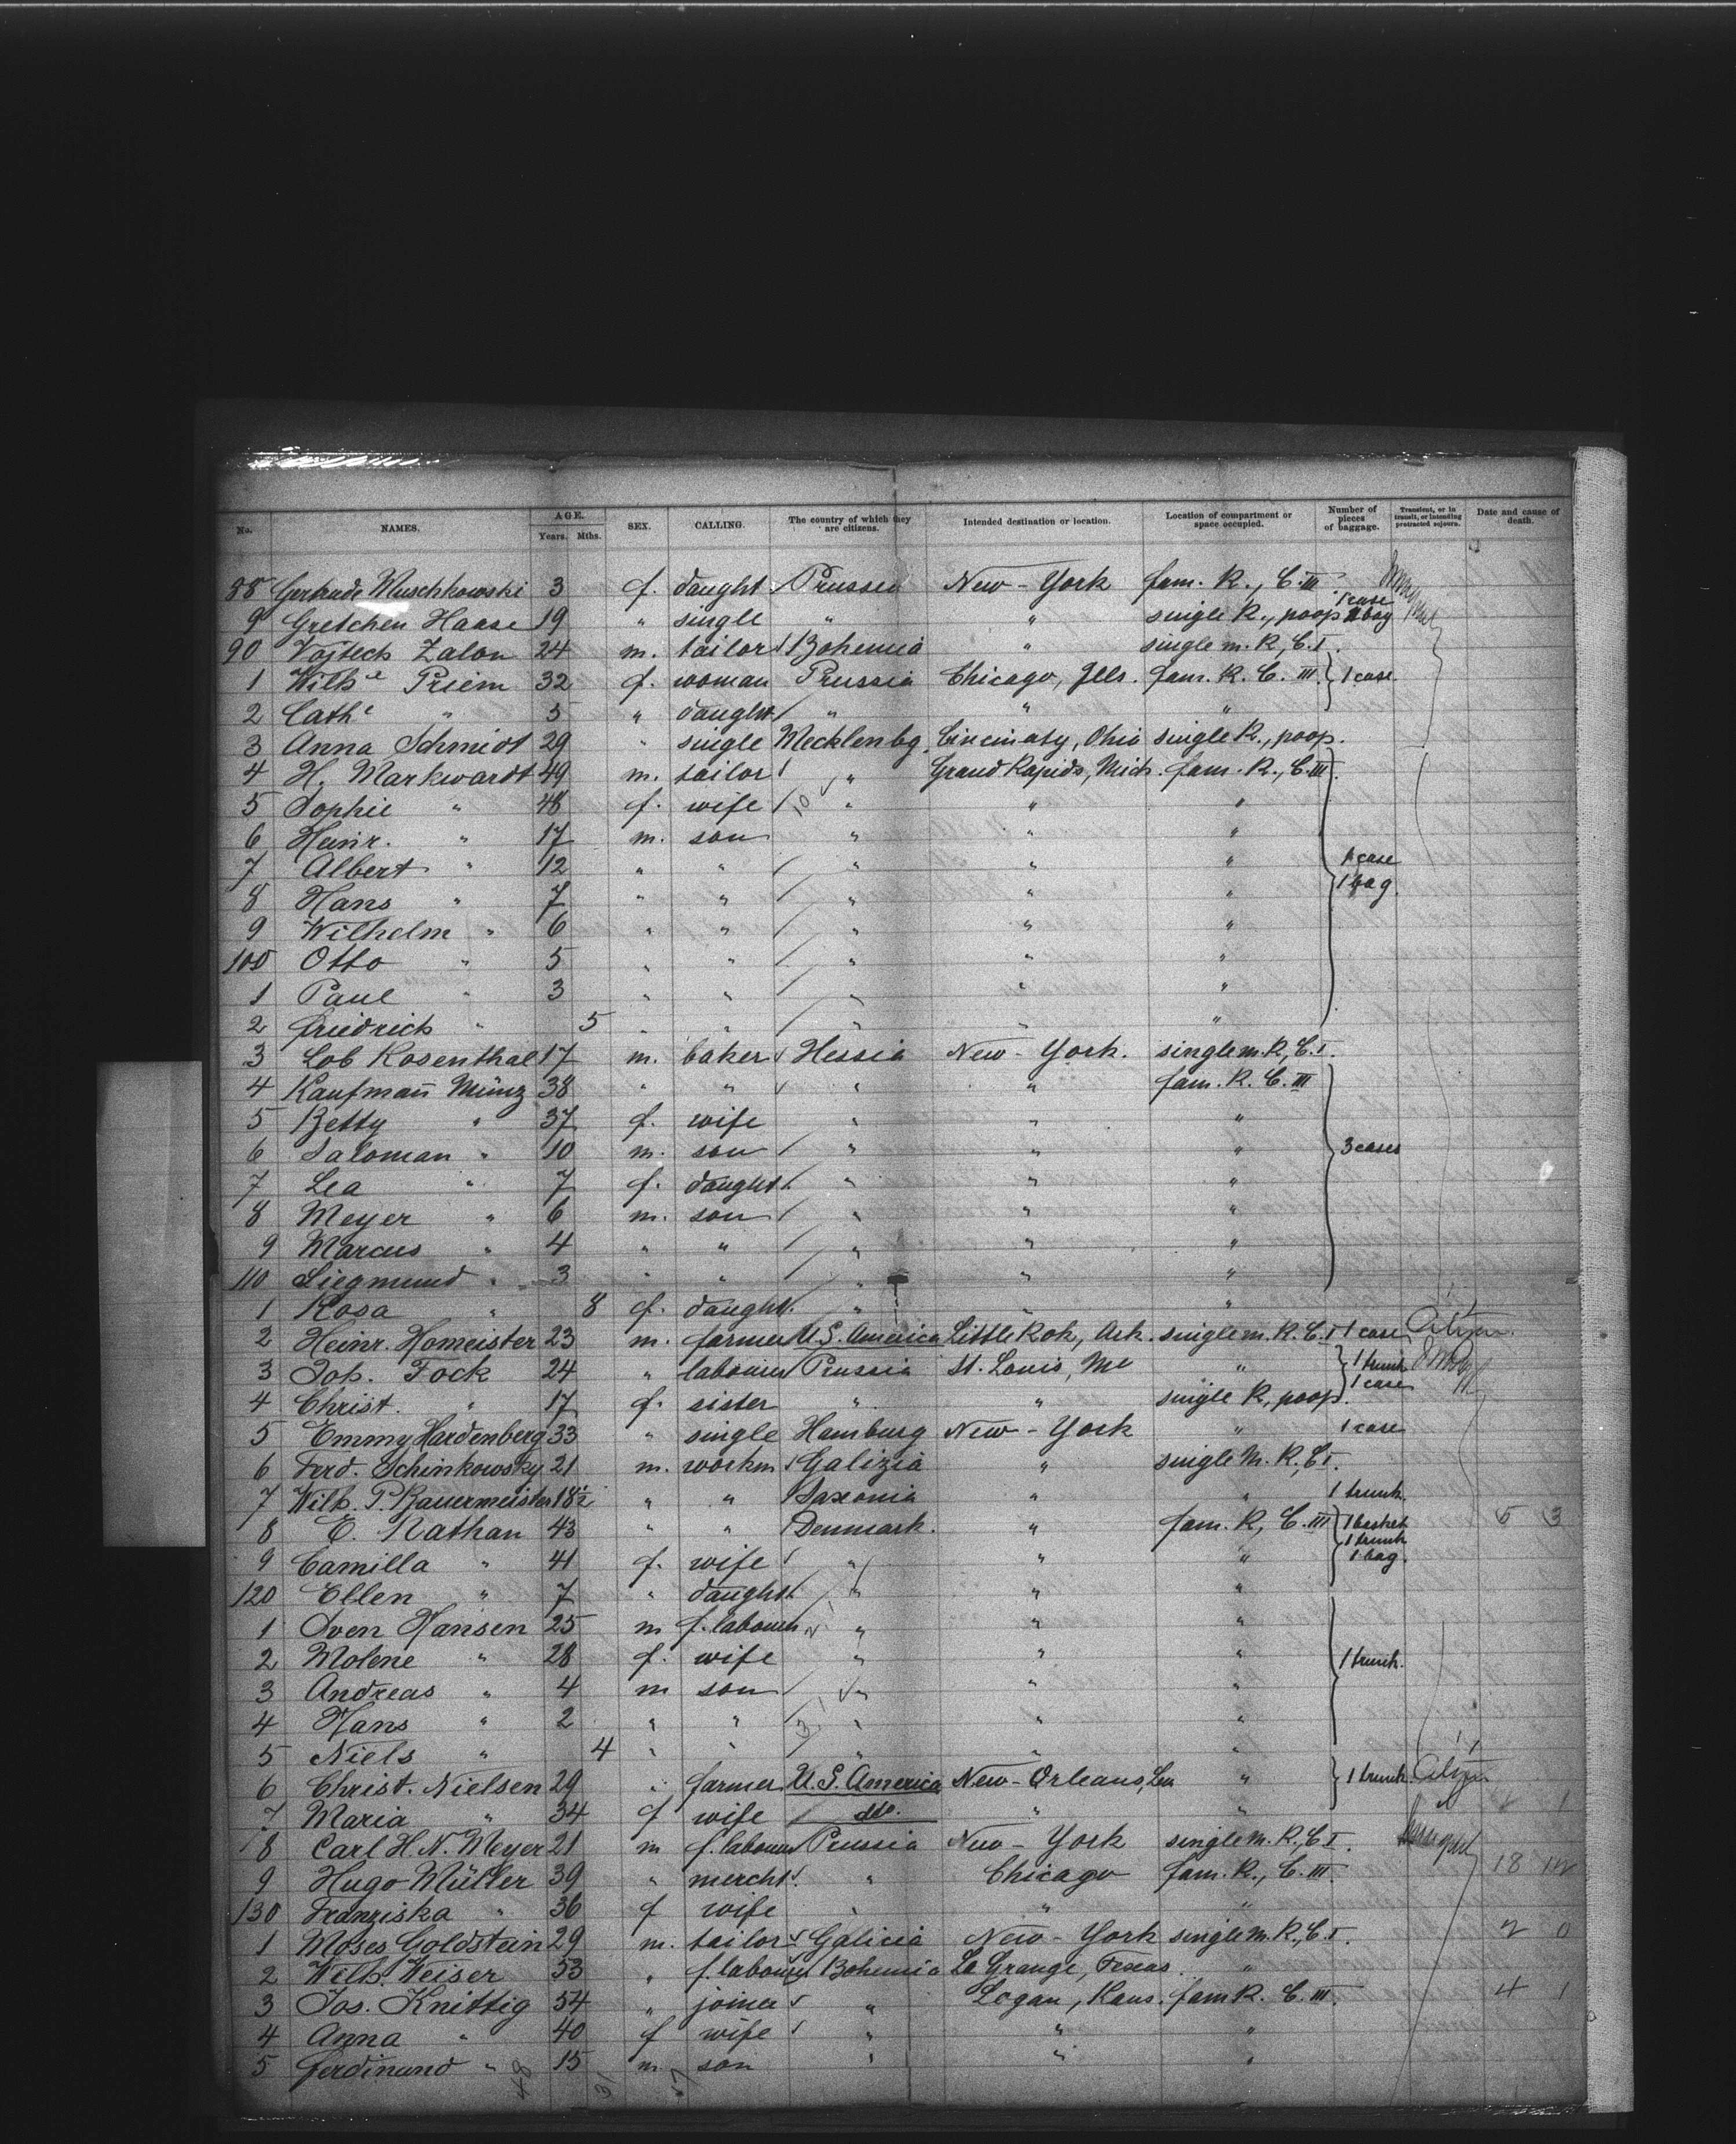 No. NAMES. AGE. Years. Mths. SEX. CALLING. The country of which they are citizens. Intended destination or location. Location of compartment or space occupied. Number of pieces of baggage. Transient, or in transit, or intending protracted sojourn. Date and cause of death.
88 Gertrude Muschkowski 3 f. daught Prussia New-York fam. R., C. III.
9 Gretchen Haase 19 " single " " single R., poop 1 case 1 bag
90 Vojtech Zalon 24 m. tailor Bohemia " single m. R, C. I.
1 Wilhe Priem 32 f. woman Prussia Chicago, Ills. fam. R. C. III. 1 case.
2 Cathe " 5 " daught " " "
3 Anna Schmidt 29 " single Mecklenbg. Cincinaty, Ohio single R., poop.
4 H. Markwardt 49 m. tailor " Grand Rapids, Mich. fam. R., C. III.
5 Sophie " 48 f. wife " " "
6 Heinr. " 17 m. son " " "
7 Albert " 12 " " " " " 1 case
8 Hans " 7 " " " " " 1 bag.
9 Wilhelm " 6 " " " " "
100 Otto " 5 " " " " "
1 Paul " 3 " " " " "
2 Friedrich " 5 " " " " "
3 Lob Rosenthal 17 m. baker Hessia New-York. single m. R, C. I.
4 Kaufmañ Münz 38 " " " " fam. R. C. III
5 Betty " 37 f. wife " " "
6 Saloman " 10 m. son " " " 3 cases
7 Lea " 7 f. daught. " " "
8 Meyer " 6 m. son " " "
9 Marcus " 4 " " " " "
110 Siegmund " 3 " " " " "
1 Rosa " 8 f. daught. " " "
2 Heinr. Homeister 23 m. farmer U.S. America Little Rok, Ark. single m. R. C. I 1 case
3 Joh. Fock 24 " labourer Prussia St. Louis, Mo " 1 trunk
4 Christ. " 17 f. sister " " single R, poop. 1 case
5 Emmy Hardenberg 33 " single Hamburg New-York " 1 case
6 Ferd. Schinkowsky 21 m. workm Galizia " single M. R, C. I.
7 Wilh. P. Bauermeister 18½ " " Saxonia " " 1 trunk.
8 E. Nathan 43 " " Denmark. " fam. R, C. III 1 basket 5 3
9 Camilla " 41 f. wife " " " 1 trunk 1 bag.
120 Ellen " 7 " daught. " " "
1 Sven Hansen 25 m f. labourer " " "
2 Molene " 28 f. wife " " " 1 trunk.
3 Andreas " 4 m son " " "
4 Hans " 2 " " " " "
5 Niels " 4 " " " " "
6 Christ. Nielsen 29 " farmer U.S. America New-Orleans, Lou " 1 trunk.
7 Maria " 34 f wife do. " "
8 Carl H. N. Meyer 21 m f. labourer Prussia New-York single m. R, C. I.
9 Hugo Müller 39 " mercht. " Chicago fam. R., C. III. 18
130 Franziska " 36 f wife " " "
1 Moses Goldstein 29 m. tailor Galicia New-York single m. R, C. I. 2 0
2 Wilh. Weiser 53 " f. labourer Bohemia La Grange, Texas. "
3 Jos. Knittig 54 " joiner " Logan, Kans. fam R. C. III. 4 1
4 Anna " 40 f wife " " "
5 Ferdinand " 15 m. son " " "
48 31